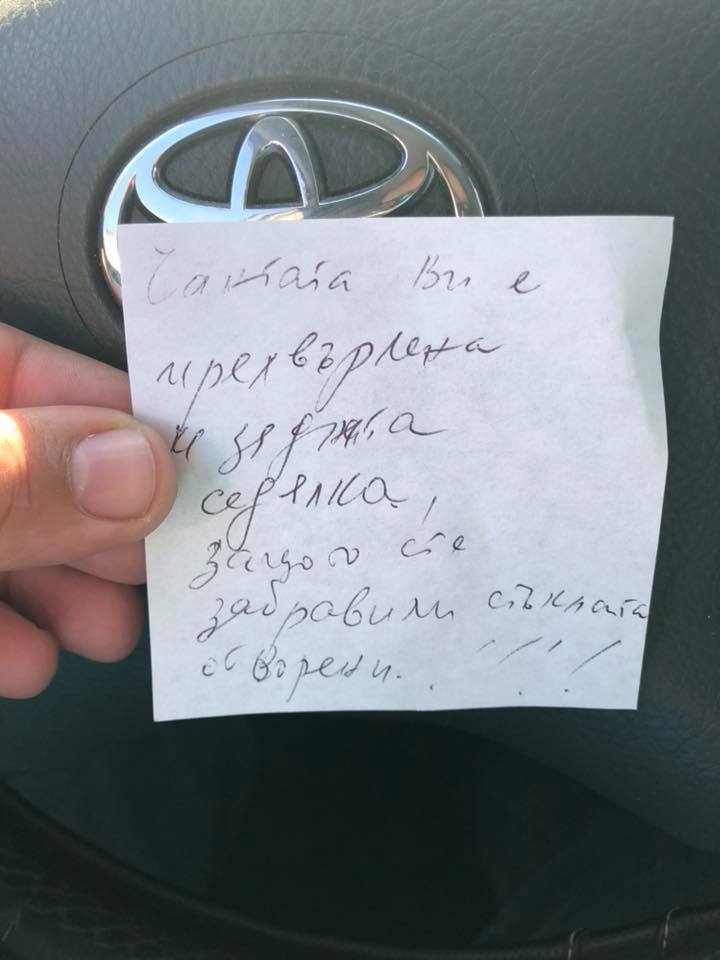 Чантата Ви е
прехвърлена
и задната
седалка,
защото сте
забравили стъклата
отворени. !!!